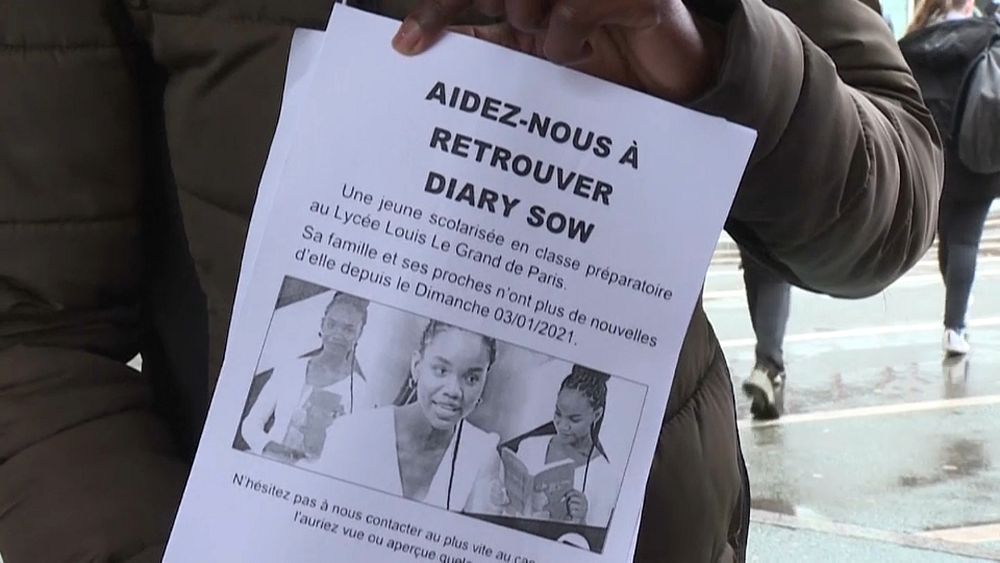 AIDEZ-NOUS À
RETROUVER
DIARY SOW
Une jeune scolarisée en classe préparatoire
au Lycée Louis Le Grand de Paris.
Sa famille et ses proches n'ont plus de nouvelles
d'elle depuis le Dimanche 03/01/2021.
N'hésitez pas à nous contacter au plus vite au
l'auriez vue ou aperçue